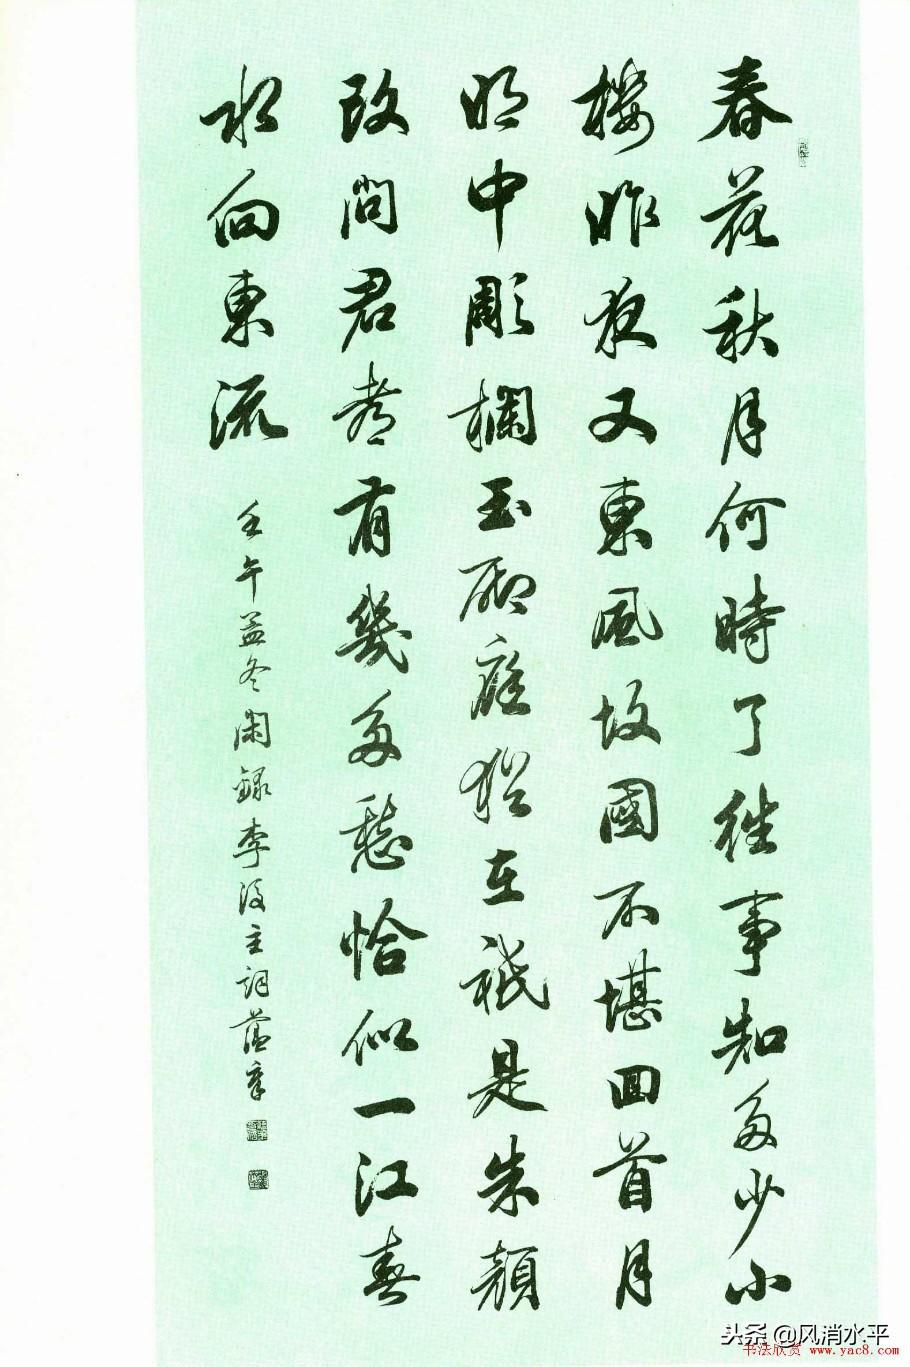 春花秋月何時了往事知多少小
樓昨夜又東風故國不堪回首月
明中彫欄玉砌庭猶在祇是朱顏
改問君都有幾多愁恰似一江春
水向東流
壬午孟冬閑録李後主詞蔭章
头条 @风消水平
书法欣赏 www.yac8.com